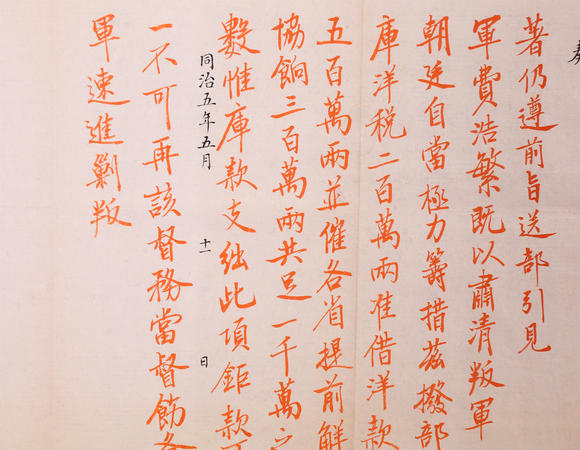 著仍遵前旨送部引見
軍費浩繁既以肅清叛軍
朝廷自當極力籌措茲撥部
庫洋稅二百萬兩准借洋款
五百萬兩並催各省提前解
協餉三百萬兩共足一千萬之
數惟庫款支絀此項鉅款可
同治五年五月 十一 日
一不可再該督務當督飭各
軍速進剿叛